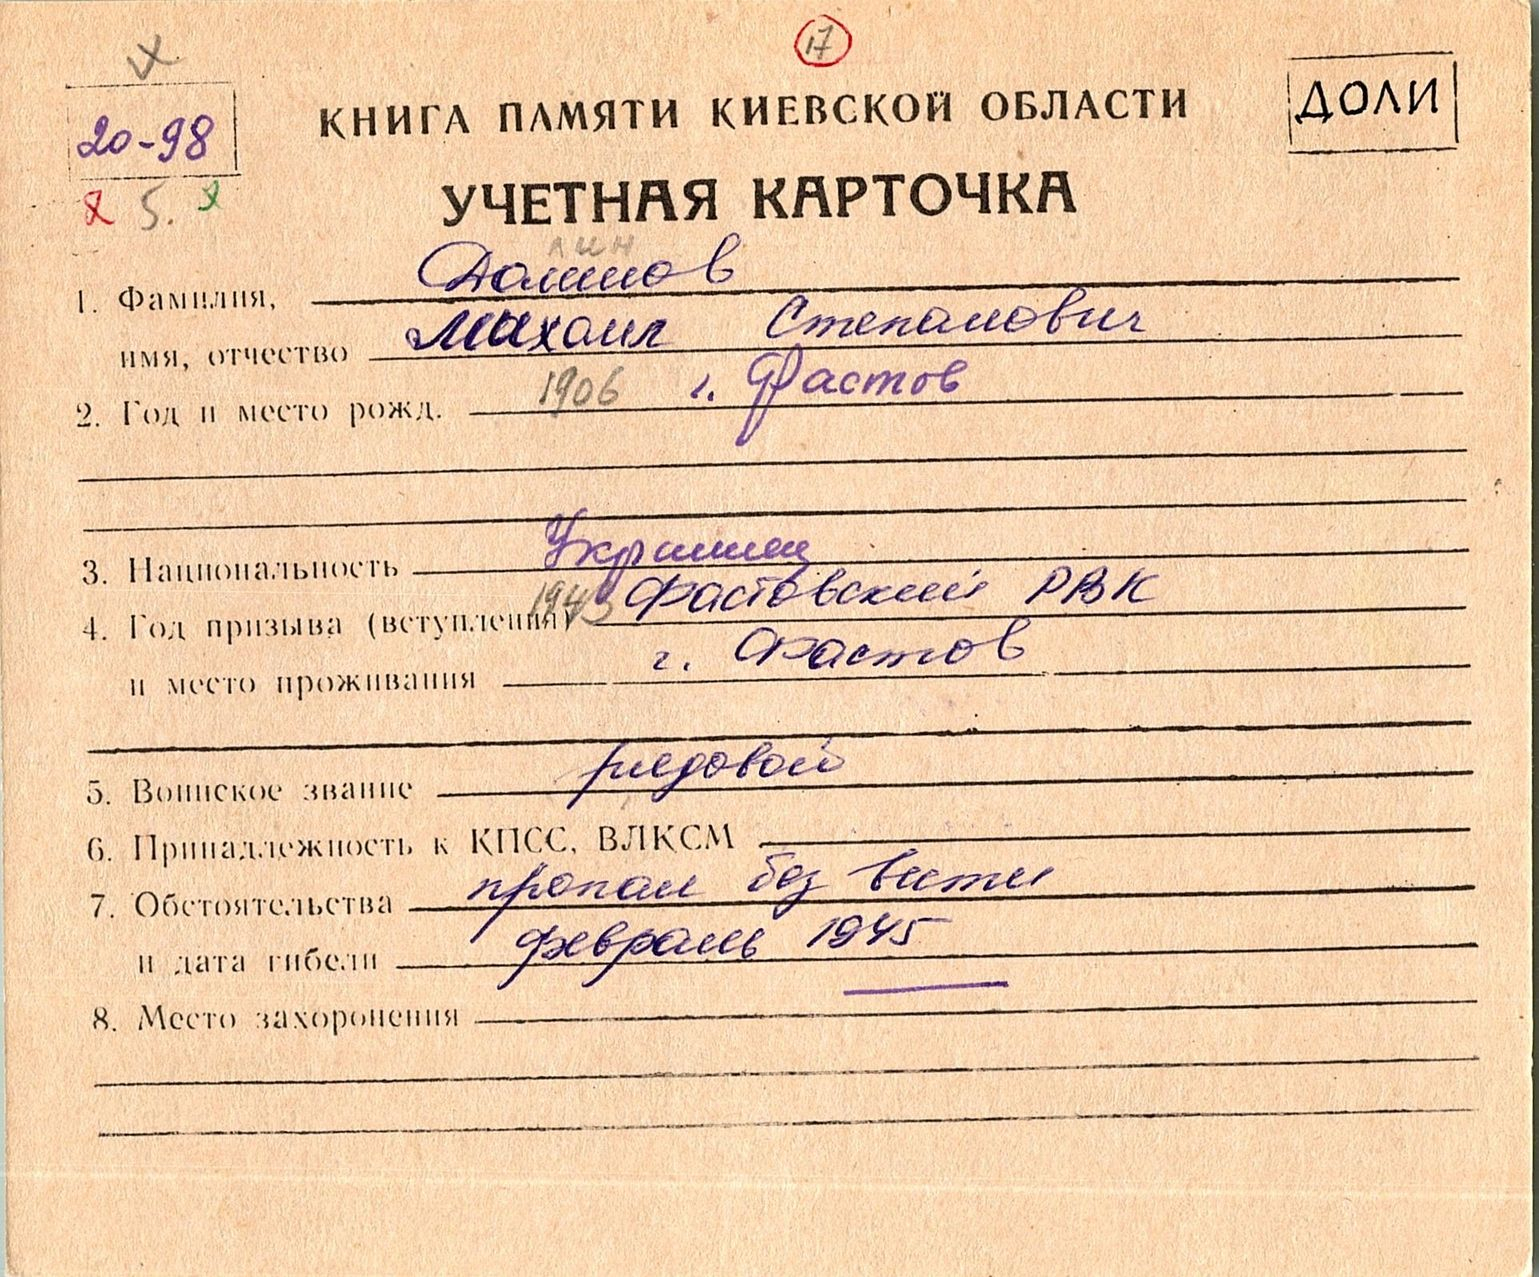 17
20-98
КНИГА ПАМЯТИ КИЕВСКОЙ ОБЛАСТИ
ДОЛИ
5.
УЧЕТНАЯ КАРТОЧКА
лин
1. Фамилия, Долинов
имя, отчество Михаил Степанович
2. Год и место рожд. 1906 г. Фастов
3. Национальность Украинец
4. Год призыва (вступления) 1943 Фастовский РВК
и место проживания г. Фастов
5. Воинское звание рядовой
6. Принадлежность к КПСС, ВЛКСМ
7. Обстоятельства пропал без вести
и дата гибели февраль 1945
8. Место захоронения